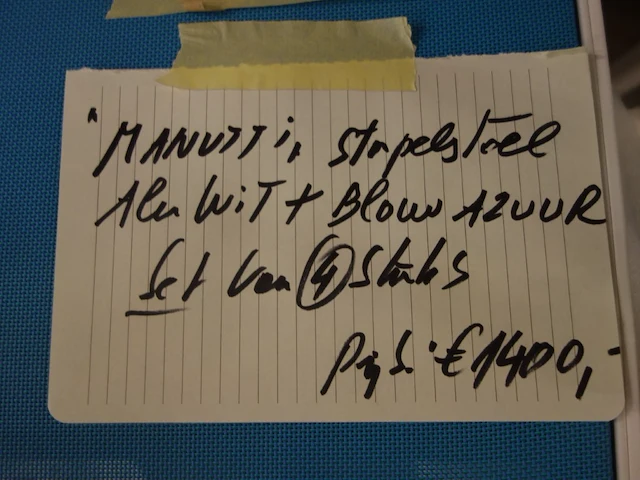 "MANUTTI" stapelstoel
Alu WiT + Blouw AZUUR
Set Van 4 Stuks
Prijs. € 1400,-